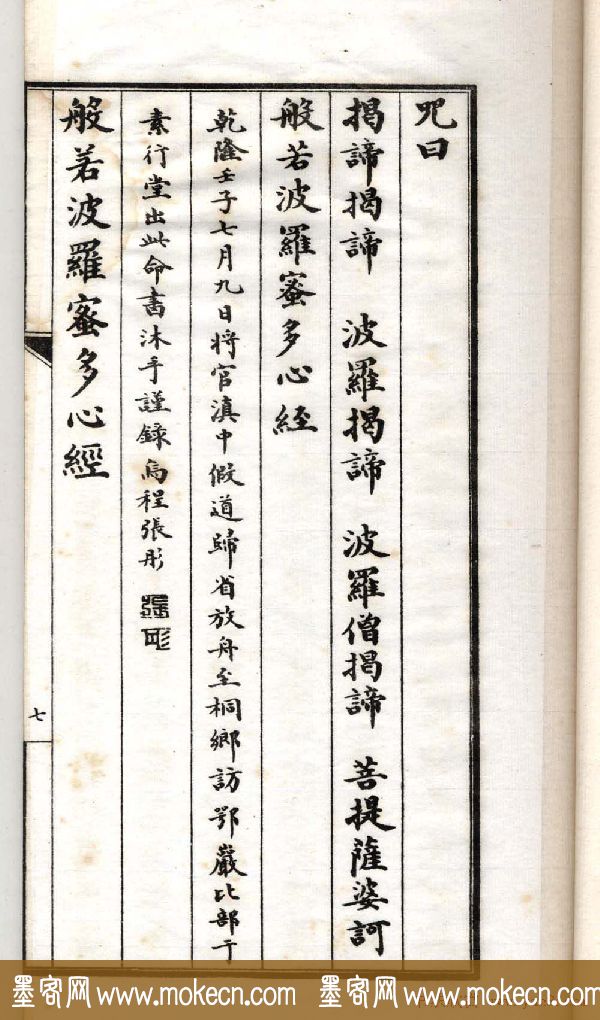 咒曰
揭諦揭諦 波羅揭諦 波羅僧揭諦 菩提薩婆訶
般若波羅蜜多心経
乾隆壬子七月九日将官滇中假道歸省放舟至桐鄉訪鄂巖比部于
素行堂出此命書沐手謹錄烏程張彤
張彤
般若波羅蜜多心經
七
墨客网 www.mokecn.com 墨客网 www.mokecn.com